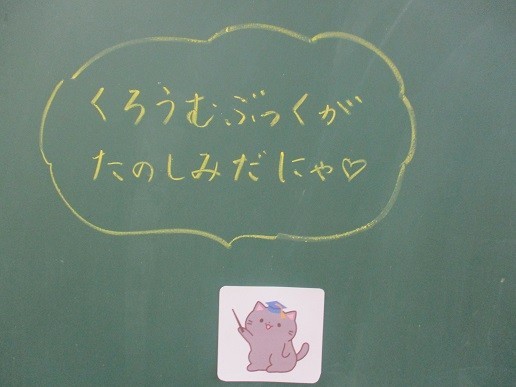 くろうむぶっくが
たのしみだにゃ♡